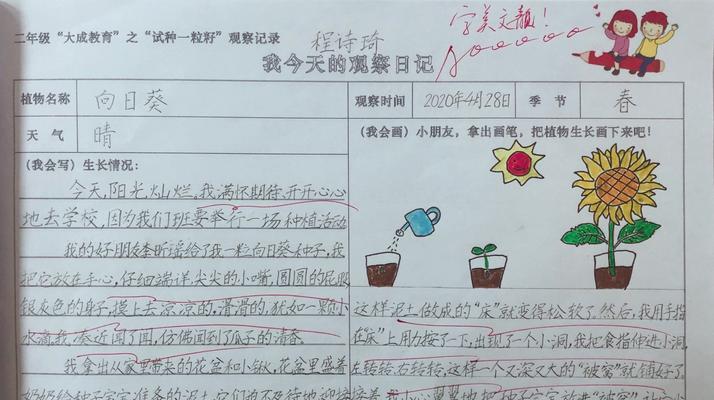 二年级“大成教育”之“试种一粒籽”观察记录
程诗琦
字美文靓！
我今天的观察日记
植物名称 向日葵 观察时间 2020年4月28日 季节 春
天气 晴
(我会画)小朋友，拿出画笔，把植物生长画下来吧！
(我会写)生长情况：
今天，阳光灿烂。我满怀期待、开开心心
地去学校，因为我们班要举行一场种植活动
我的好朋友李昕瑶给了我一粒向日葵种子，我
把它放在手心，仔细端详，尖尖的小嘴，圆圆的屁股
银灰色的身子，摸上去凉凉的，滑滑的，犹如一颗小
水滴。我凑近闻了闻，仿佛闻到了瓜子的清春。
我拿出从家里带来的花盆和小锹，花盆里盛着
奶奶给种子宝宝准备的泥土，它们迫不及待地迎接
这样泥土做成的“床”就变得松软了。然后，我用手指
在“床”上用力按了一下，出现了一个小洞，我把食指伸进小洞，
左转转，右转转，这样一个又深又大的“被窝”就铺好了
我小心翼翼地把种子宝宝放进“被窝”